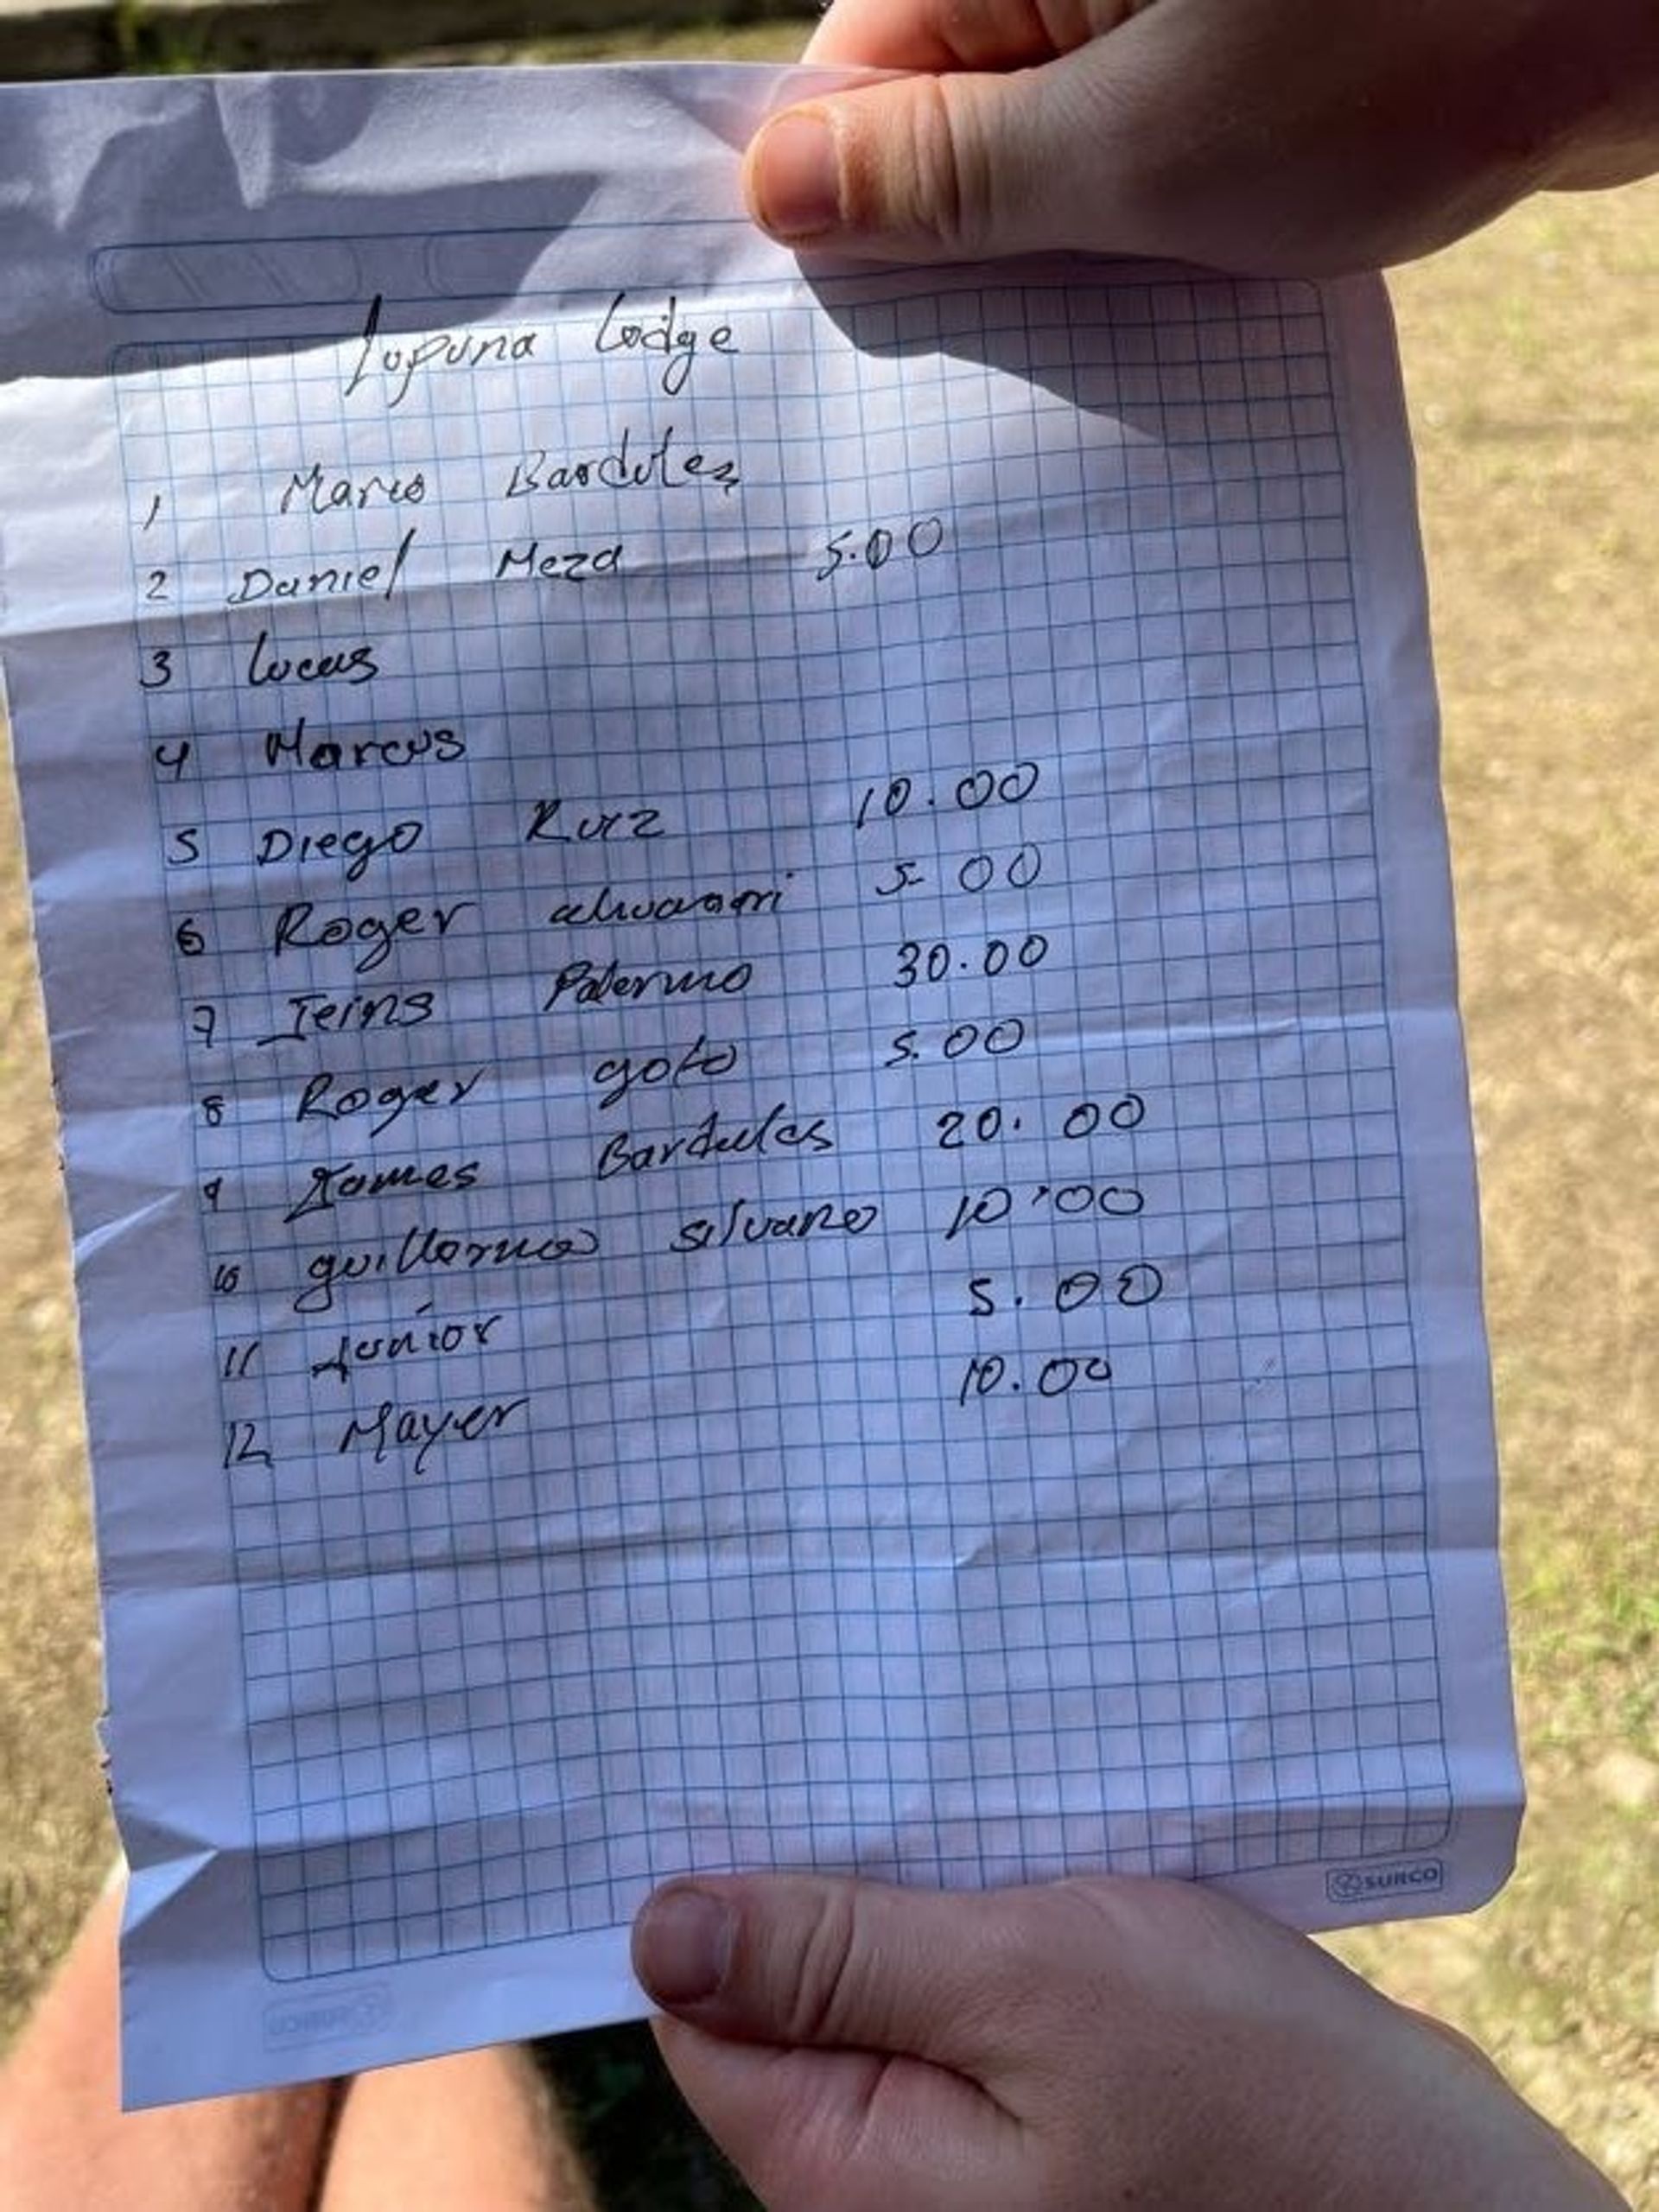 Lupuna Lodge
1 Mario Bardales
2 Daniel Meza 5.00
3 Lucas
4 Marcus
5 Diego Ruiz 10.00
6 Roger ahuanari 5.00
7 Jeins Palermo 30.00
8 Roger goto 5.00
9 James Bardales 20.00
10 guillermo silvano 10.00
11 Junior 5.00
12 Mayer 10.00
SURCO